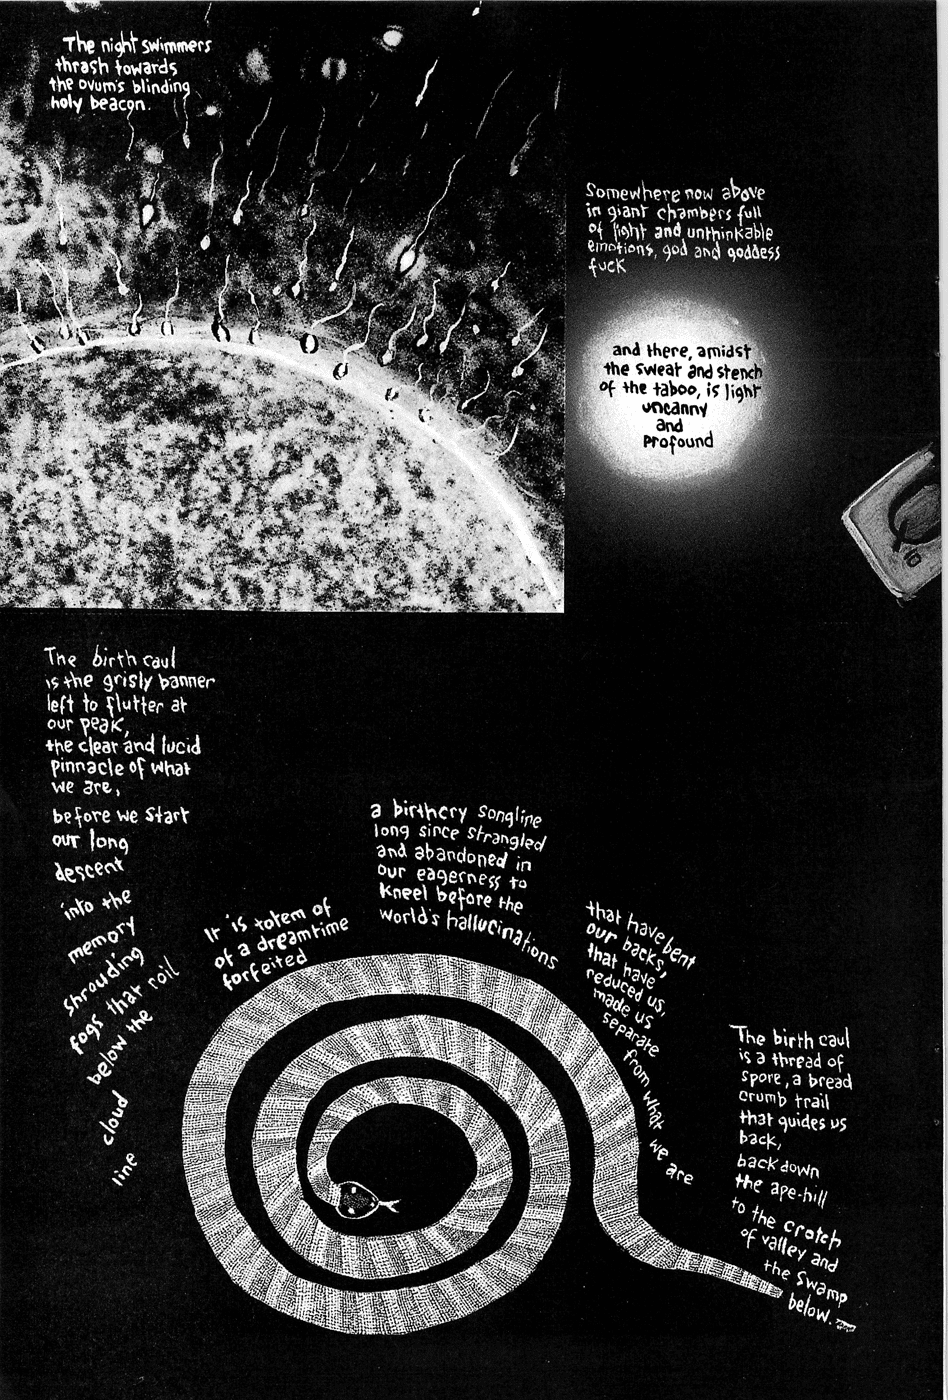 The night swimmers
thrash towards
the ovum's blinding
holy beacon.
Somewhere now above
in giant chambers full
of light and unthinkable
emotions, god and goddess
fuck
and there, amidst
the sweat and stench
of the taboo, is light
uncanny
and
profound
The birth caul
is the grisly banner
left to flutter at
our peak,
the clear and lucid
pinnacle of what
we are,
before we start
our long
descent
into the
memory
shrouding
fogs that roil
below the
cloud
line
It is totem of
of a dreamtime
forfeited
a birthcry songline
long since strangled
and abandoned in
our eagerness to
kneel before the
world's hallucinations
that have bent
our backs,
that have
reduced us,
made us
separate
from what
we are
The birth caul
is a thread of
spore, a bread
crumb trail
that guides us
back,
back down
the ape-hill
to the crotch
of valley and
the swamp
below.